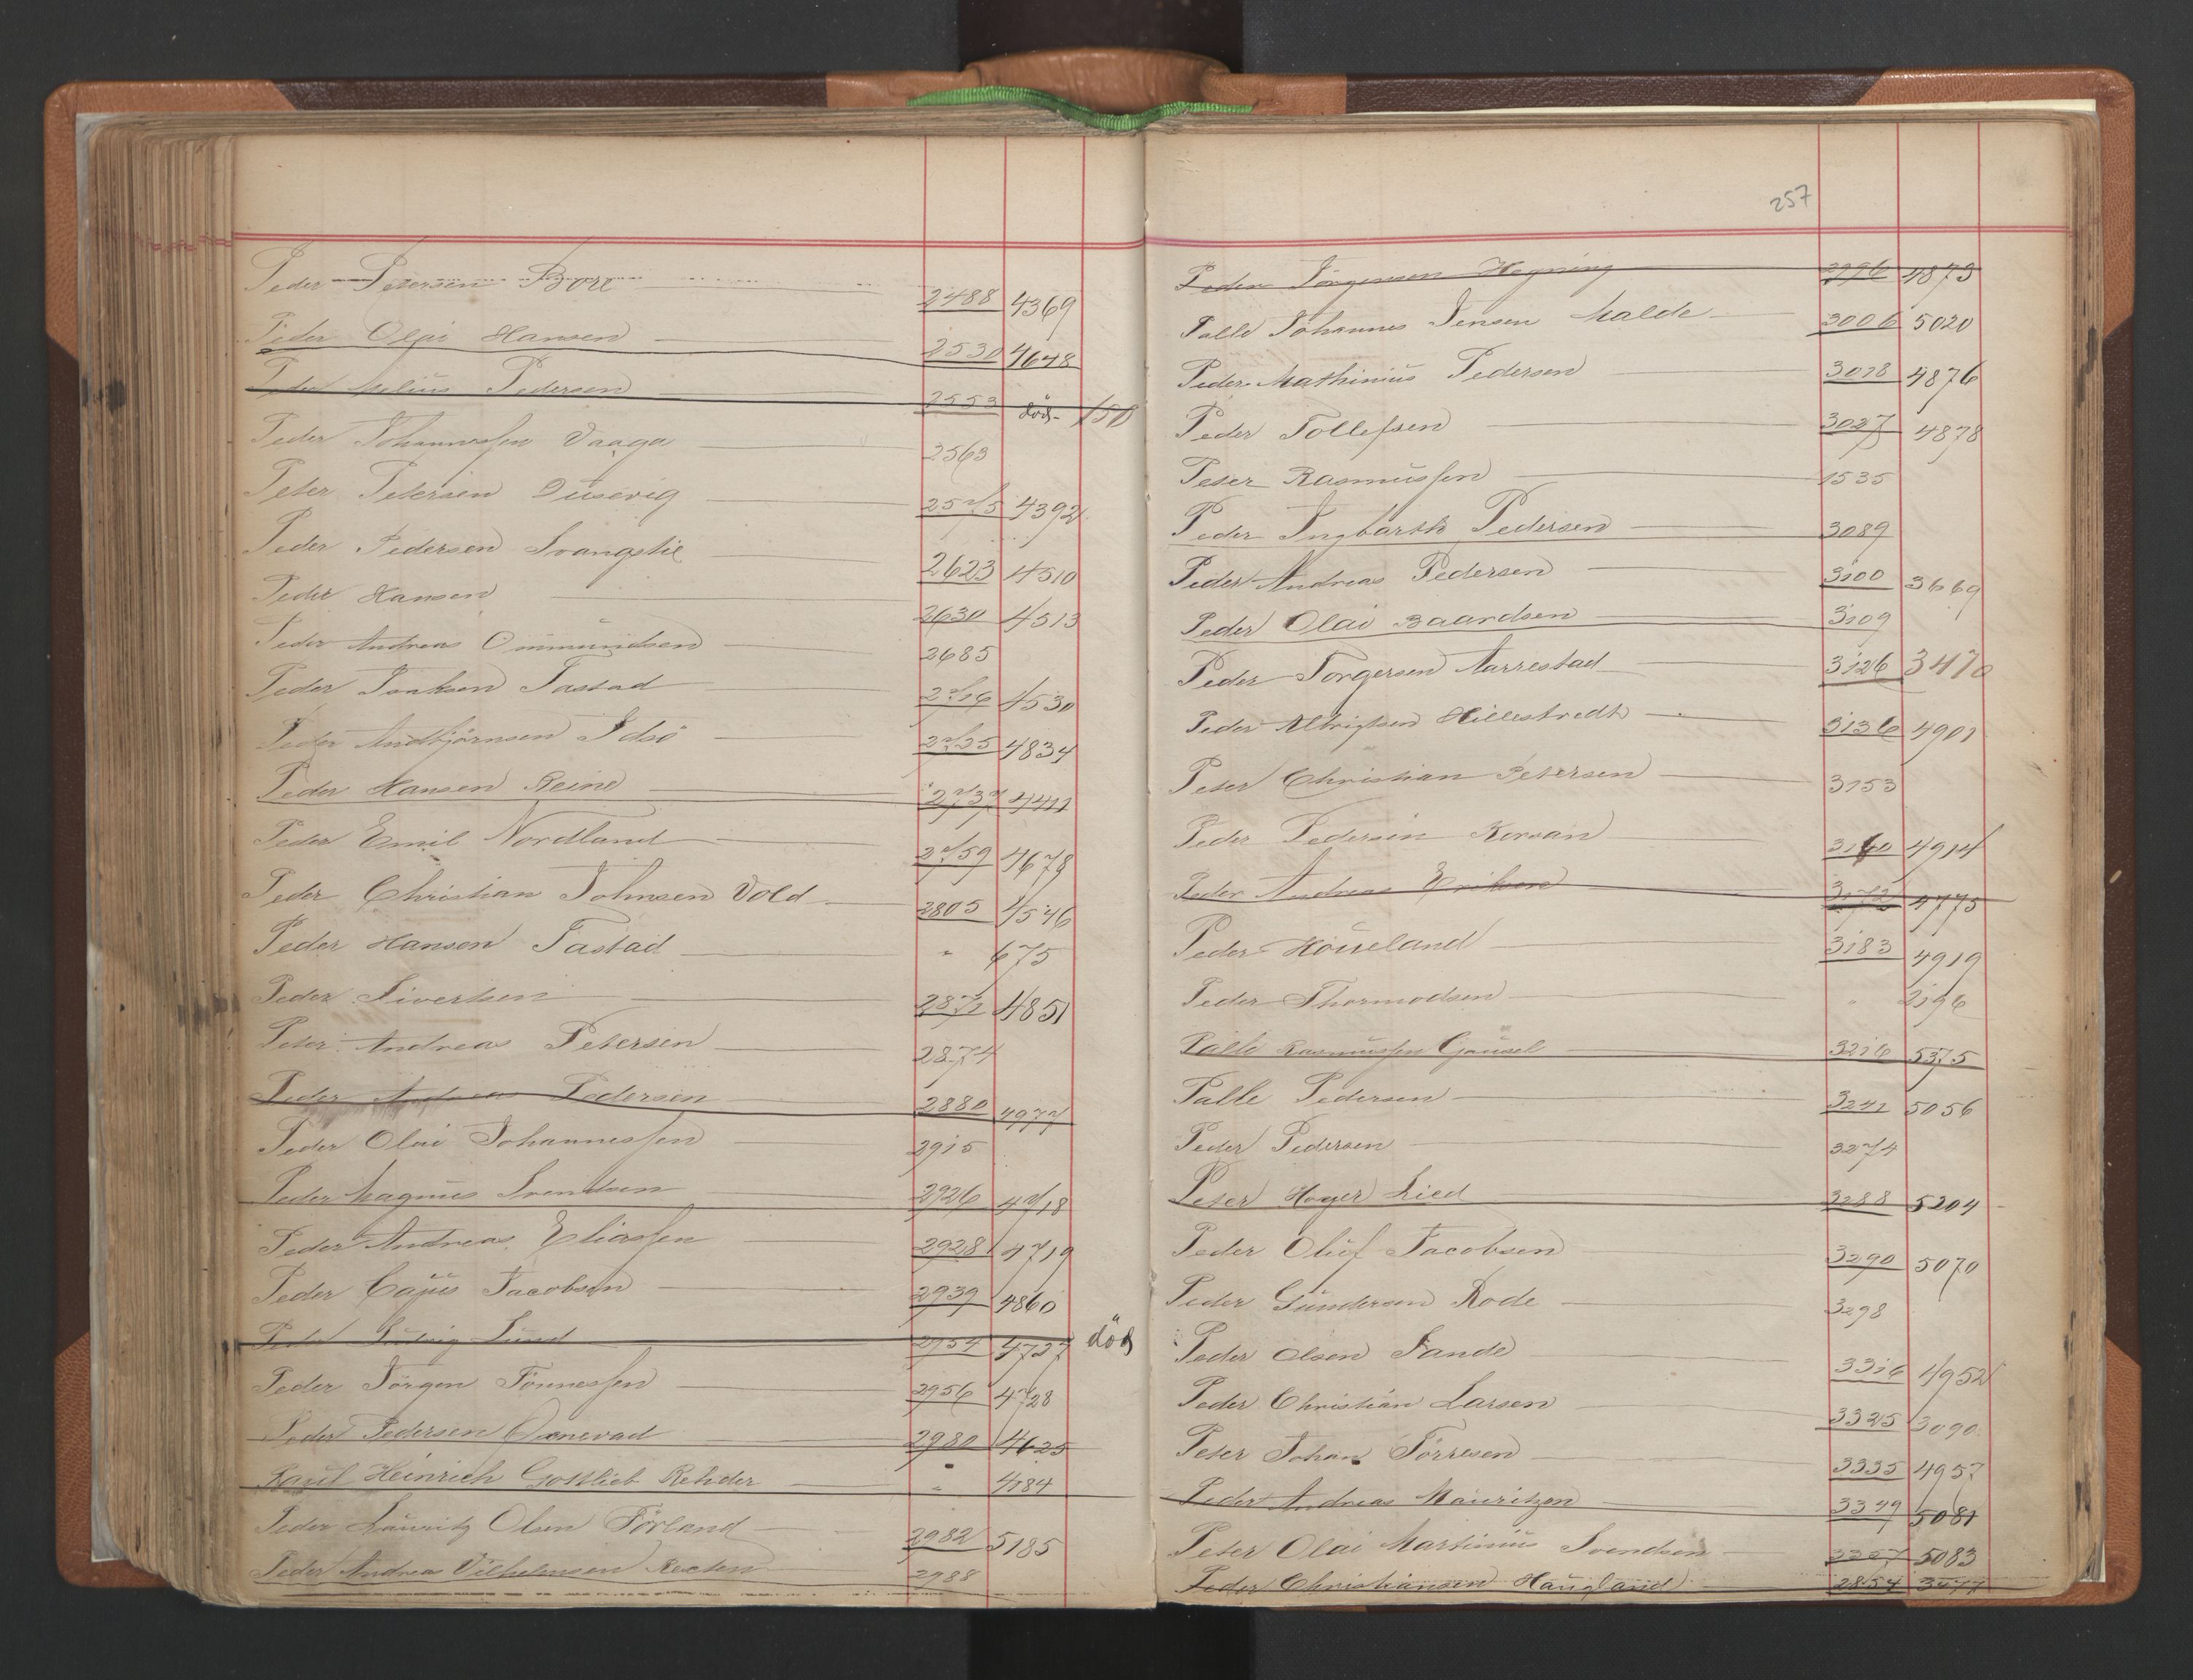 Peder Petersen Bore 2488 4369
Peder Olai Hansen 2530 4648
Peder Melius Pedersen 2553 död
Peder Johannessen Vaaga 2563
Peter Petersen Dusevig 2575 4392
Peder Pedersen 2623 4510
Peder Hansen 2630 4513
Peder Andreas Ommundsen 2685
Peder Tastad 2716 4530
Peder Andbjörnsen Idsö 2725 4834
Peder Hansen Reine 2737 4411
Peder Emil Nordland 2759 4678
Peder Christian Johnsen Vold 2805 4546
Peder Hanson Tastad " 675
Peder Sivertsen 2871 4851
Peter Andreas Petersen 2874
Peder Andreas Pedersen 2880 4977
Peder Olai Johannessen 2915
Peder Magnus Svendsen 2926 4718
Peder Andreas Eliassen 2928 4719
Peder Cajus Jacobsen 2939 4860
Peder Ludvig Lund 2954 4727 död
Peder Jörgen Tönnessen 2956 4728
Peder Pedersen 2980 4625
Paul Heinrich Gottlieb Rehder " 4184
Peder Lauritz Olsen Förland 2982 5185
Peder Andreas Vilhelmsen 2988
257
Peder Jörgensen Hegning 2996 4873
Palle Johannes Jensen Malde 3006 5020
Peder Mathinius Pedersen 3018 4876
Peder Tollefsen 3027 4878
Peter Rasmussen 1535
Peder Ingbarth Pedersen 3089
Peder Andreas Pedersen 3100 3669
Peder Olai Baardsen 3109
Peder Torgersen Aarrestad 3126 3470
Peder Hillestvedt 3136 4901
Peter Christian Petersen 3153
Peder Pedersen 3160 4914
Peder Andreas Eriksen 3172 4775
Peder Höiseland 3183 4919
Peder Thormodsen " 2196
Palle Rasmussen Gausel 3216 5375
Palle Pedersen 3241 5056
Peder Pedersen 3274
Peter Høyer Lied 3288 5204
Peder Oluf Jacobsen 3290 5070
Peder Gundersen Rode 3298
Peder Olsen Sande 3316 4952
Peder Christian Larsen 3325 3090
Peter Johan Törresen 3335 4957
Peder Andreas Mauritzen 3349 5081
Peter Olai Martinius Svendsen 3357 5083
Peder Christiansen Haugland 2854 3477